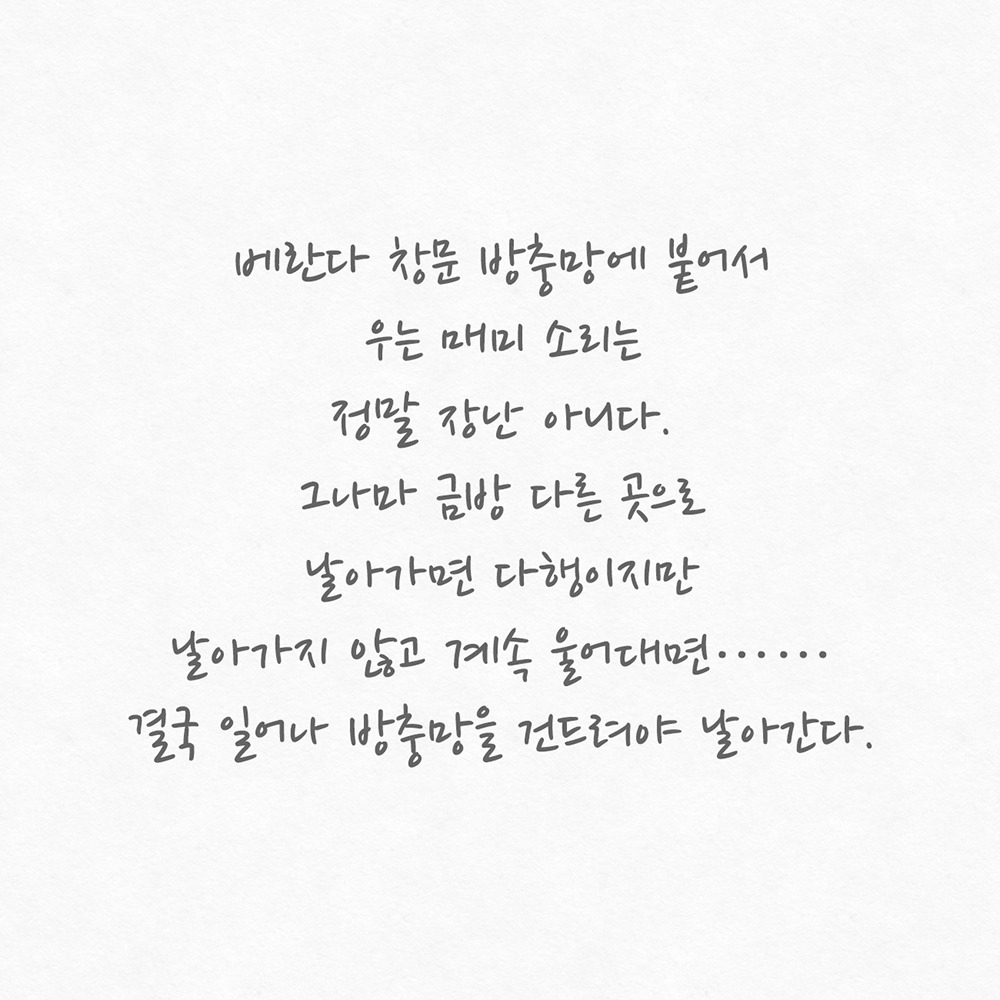 베란다 창문 방충망에 붙어서
우는 매미 소리는
정말 장난 아니다.
그나마 금방 다른 곳으로
날아가면 다행이지만
날아가지 않고 계속 울어대면······
결국 일어나 방충망을 건드려야 날아간다.